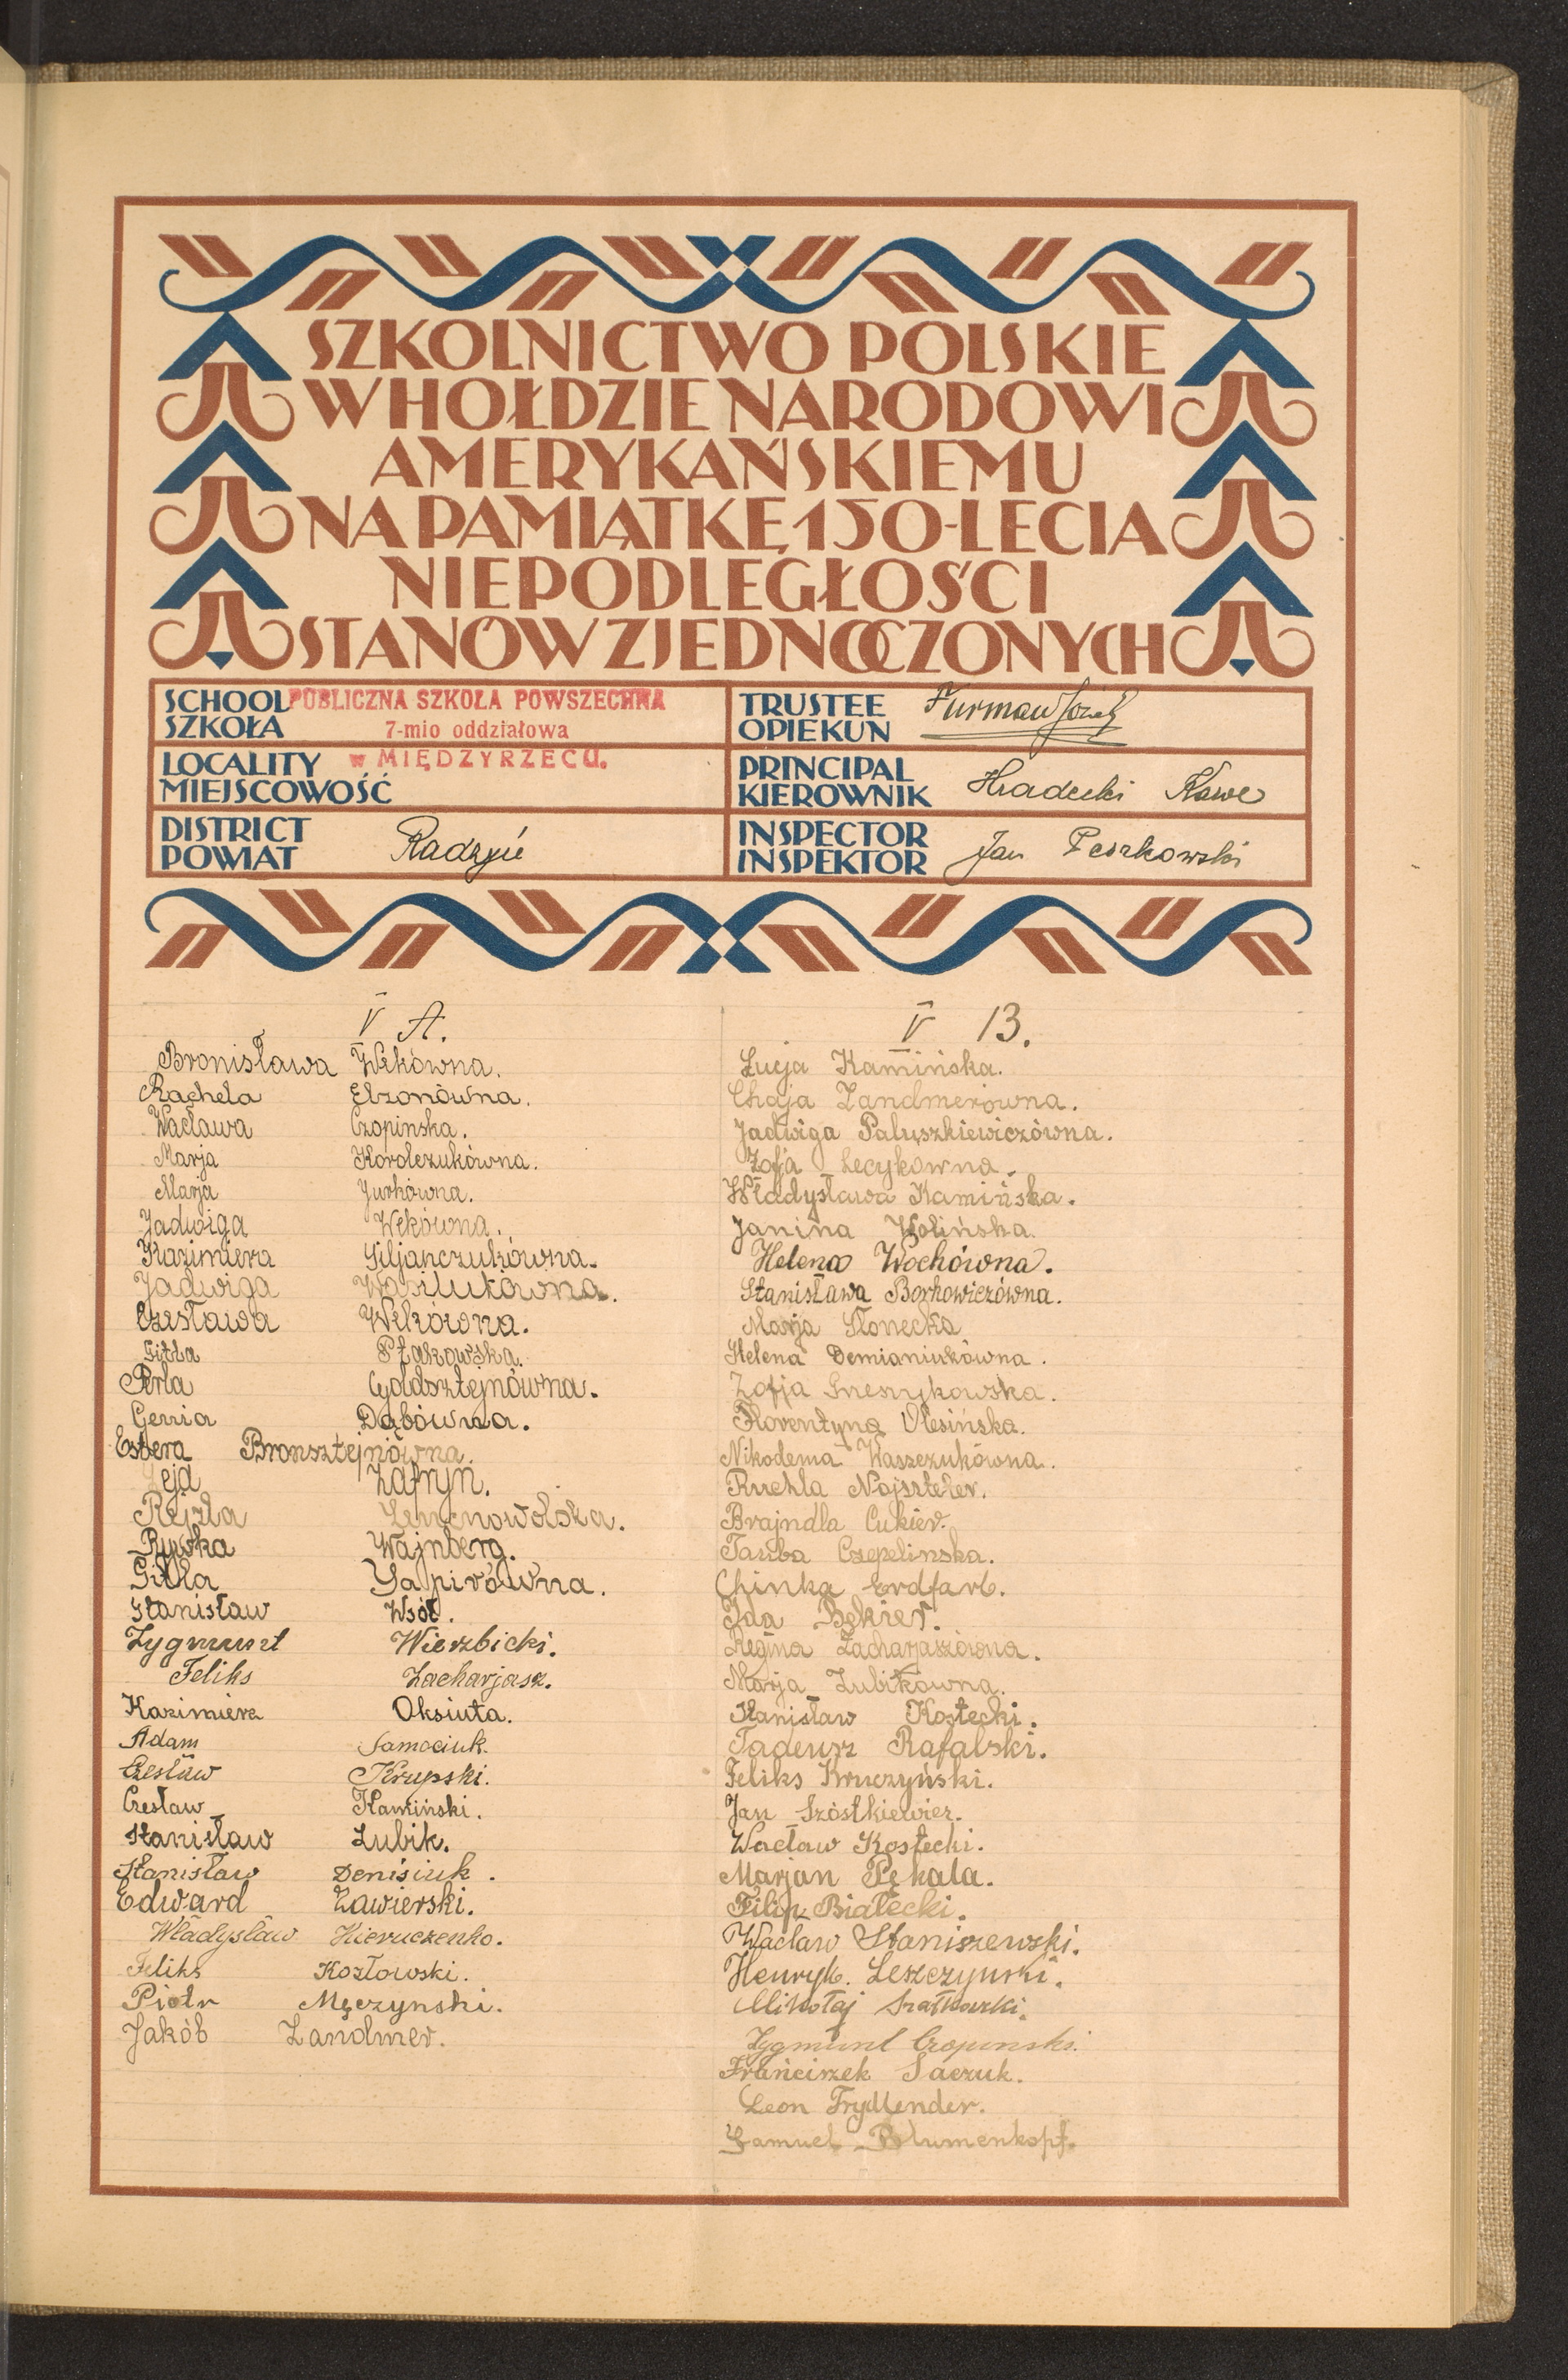 SZKOLNICTWO POLSKIE
W HOŁDZIE NARODOWI
AMERYKAŃSKIEMU
NA PAMIĄTKĘ 150-LECIA
NIEPODLEGŁOŚCI
STANÓW ZJEDNOCZONYCH
SCHOOL PUBLICZNA SZKOŁA POWSZECHNA
SZKOŁA 7-mio oddziałowa
LOCALITY w MIĘDZYRZECU.
MIEJSCOWOŚĆ
DISTRICT
POWIAT Radzyń
TRUSTEE
OPIEKUN Furman Józef
PRINCIPAL
KIEROWNIK Hradecki
INSPECTOR
INSPEKTOR Jan Peszkowski
V A.
Bronisława Wekówna.
Rachela Elzonówna.
Wacława Czopinska.
Marja Korolczukówna.
Marja Jurkówna.
Jadwiga Wekówna.
Kazimiera Filjanczukówna.
Jadwiga Wasilukówna.
Czesława Wekówna.
Gitla Ptakowska.
Perla Goldsztejnówna.
Genia Dąbówna.
Estera Bronsztejnówna.
Zafryn.
Rejzla
Rywka Wajnberg.
Gitla Szapirówna.
Stanisław Wsół.
Zygmunt Wierzbicki.
Feliks Zacharjasz.
Kazimierz Oksiuta.
Adam Samociuk.
Czesław Krupski.
Czesław Kamiński.
Stanisław Lubik.
Stanisław Denisiuk.
Edward Zawierski.
Władysław Kieruczenko.
Feliks Kozłowski.
Piotr Męczynski.
Jakób Zandmer.
V B.
Łucja Kamińska.
Chaja Zandmerówna.
Jadwiga Paluszkiewiczówna.
Zofja Lecykowna.
Władysława Kamińska.
Janina Wolińska.
Helena Wochówna.
Stanisława Borkowiczówna.
Marja Słonecka
Helena Demianiukówna.
Zofja
Florentyna Olesińska.
Nikodema Waszczukówna.
Ruchla Najszteler.
Brajndla Cukier.
Tauba Czepelinska.
Chinka Erdfarb.
Ida Bekier.
Regina Zacharjaszówna.
Marja Lubikówna.
Stanisław Kostecki.
Tadeusz Rafalski.
Feliks Kruczyński.
Jan Szóstkiewicz.
Wacław Kostecki.
Marjan Pękala.
Filip Białecki.
Wacław Staniszewski.
Henryk. Leszczynski.
Mikołaj Szatkowski.
Zygmunt Czopinski.
Franciszek Saczuk.
Leon Frydlender.
Samuel Blumenkopf.